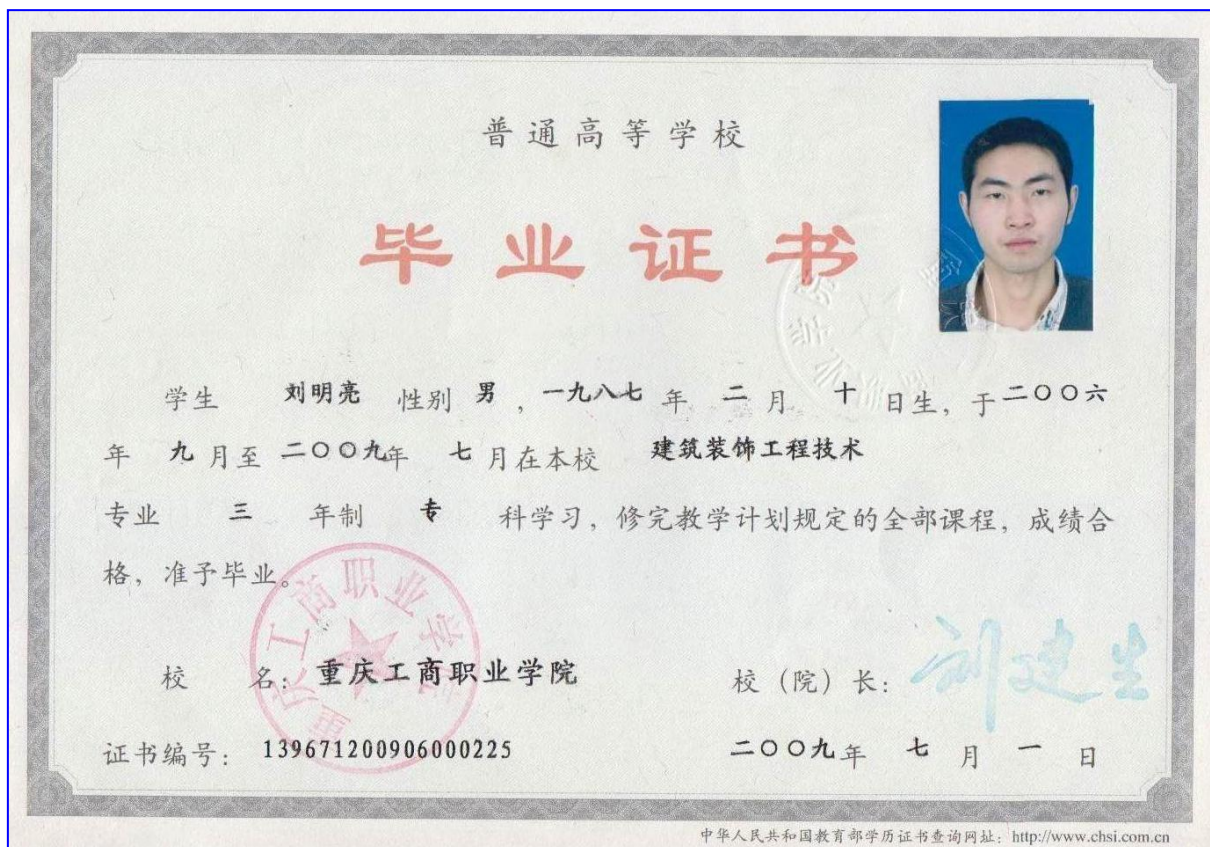 普通高等学校
毕业证书
学生 刘明亮 性别 男，一九八七 年 二 月 十 日生，于二〇〇六
年 九 月至 二〇〇九年 七 月在本校 建筑装饰工程技术
专业 三 年制 专 科学习，修完教学计划规定的全部课程，成绩合
格，准予毕业。
重庆工商职业学院
校 名：重庆工商职业学院 校（院）长：刘建生
证书编号：139671200906000225 二〇〇九年 七 月 一 日
中华人民共和国教育部学历证书查询网址：http://www.chsi.com.cn